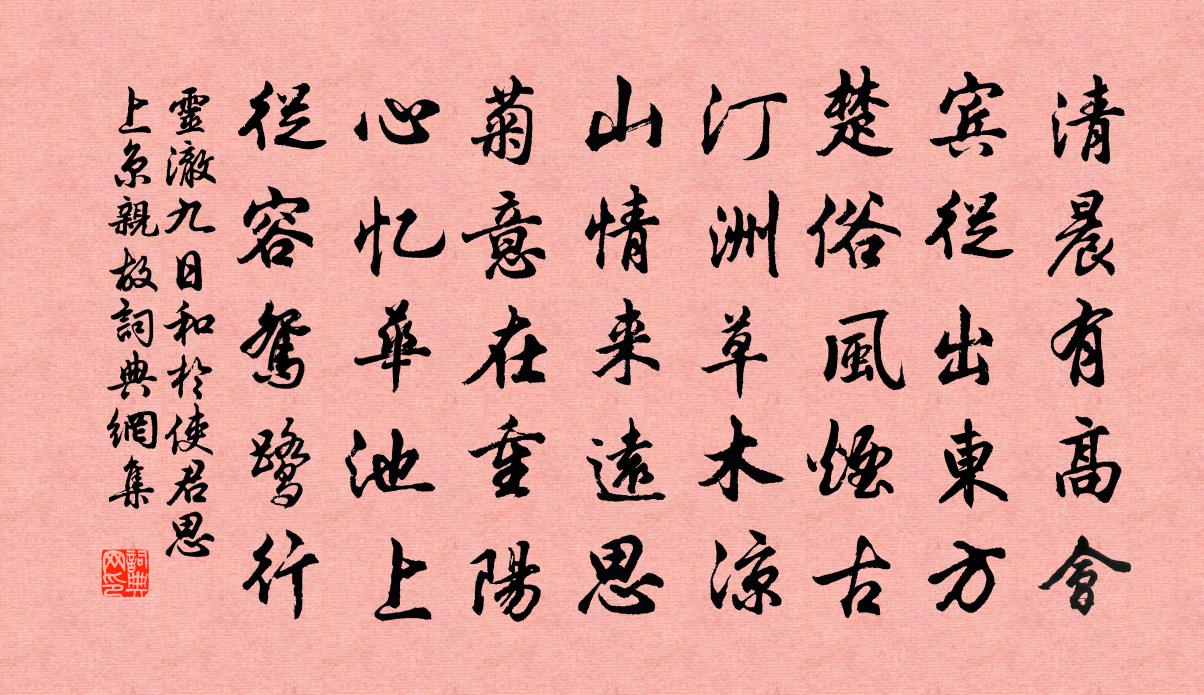 清晨有高會
宾從出東方
楚俗風煙古
汀洲草木涼
山情来遠思
菊意在重陽
心忆華池上
從容鴛鷺行
靈澈九日和於使君思
上京親故詞典網集
詞典网印